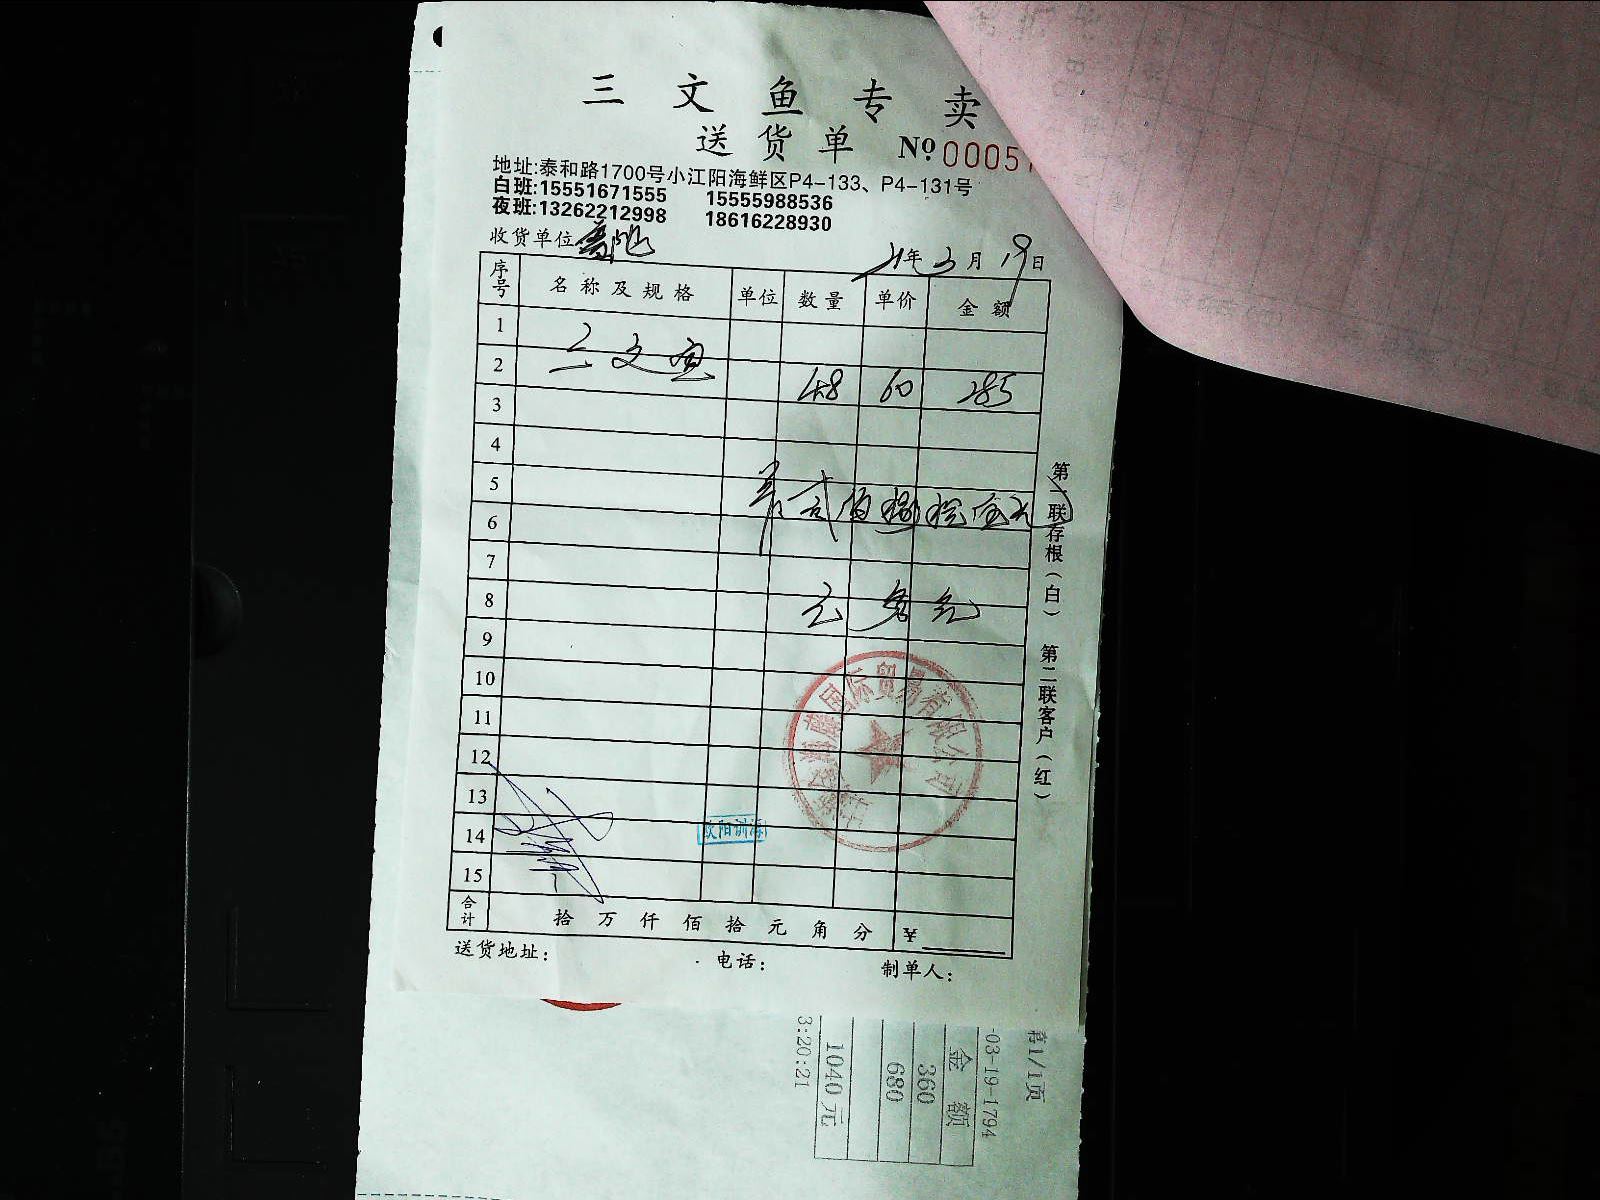 三文鱼专卖
送货单 Nº 00051
地址:泰和路1700号小江阳海鲜区P4-133、P4-131号
白班:15551671555 15555988536
夜班:13262212998 18616228930
收货单位
21年3月19日
序号 名称及规格 单位 数量 单价 金额
1
2 三文鱼 48 60 285
3
4
5
6
7
8
9
10
11
12
13
14
15
合计 拾万仟佰拾元角分 ¥
送货地址: 电话: 制单人:
第一联存根(白) 第二联客户(红)
国际贸易有限公司
欧阳训海
第1/1页
-03-19-1794
金额
360
680
1040元
3:20:21